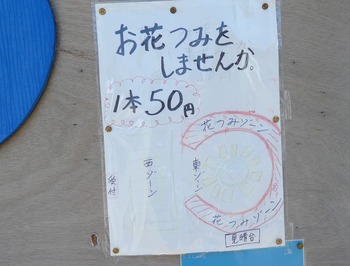 お花つみを
しませんか。
1本50円
花つみゾーン
東ゾーン
西ゾーン
受付
花つみゾーン
見晴台